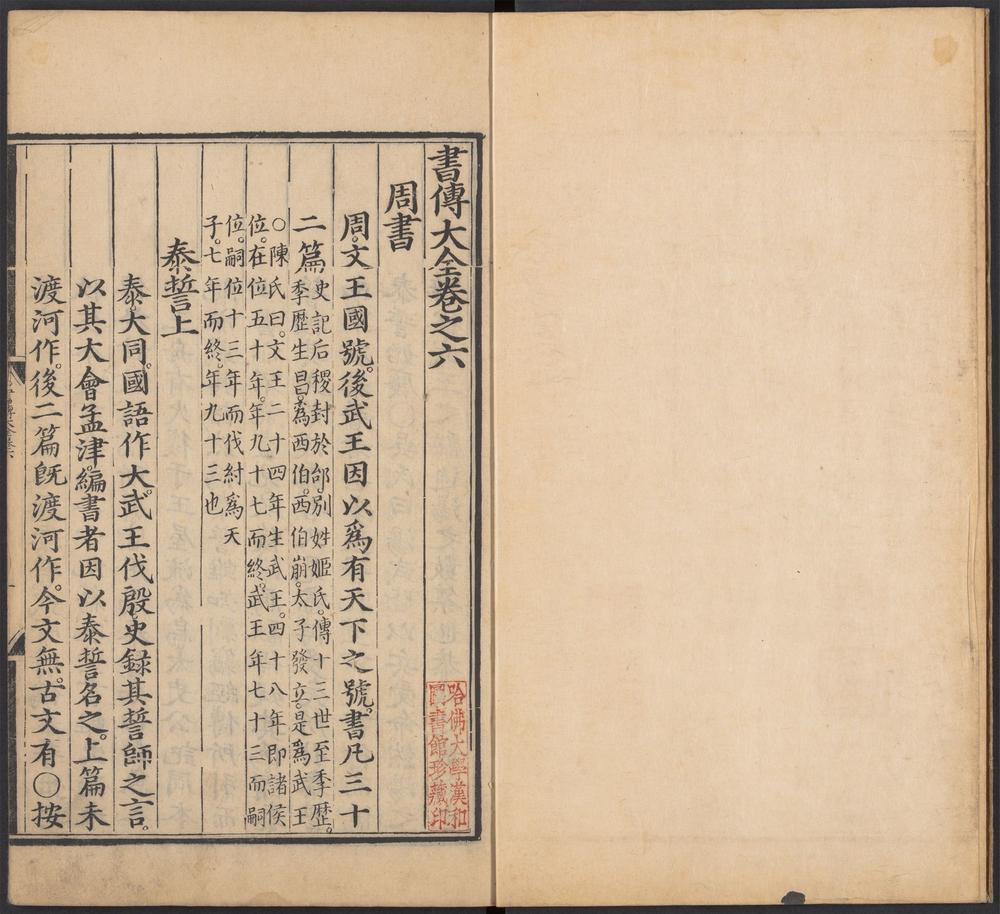 書傳大全卷之六
周書
周。文王國號。後武王因以爲有天下之號。書凡三十
二篇
史記后稷封於邰。別姓姬氏。傳十三世至季歷。
季歷生昌。爲西伯。西伯崩。太子發立。是爲武王
○陳氏曰。文王二十四年生武王。四十八年即諸侯
位。在位五十年。年九十七而終。武王年七十三而嗣
位。嗣位十三年而伐紂爲天
子。七年而終。年九十三也
泰誓上
泰。大同。國語作大。武王伐殷。史録其誓師之言。
以其大會孟津。編書者因以泰誓名之。上篇未
渡河作。後二篇旣渡河作。今文無。古文有○按
哈佛大學漢和
圖書館珍藏印